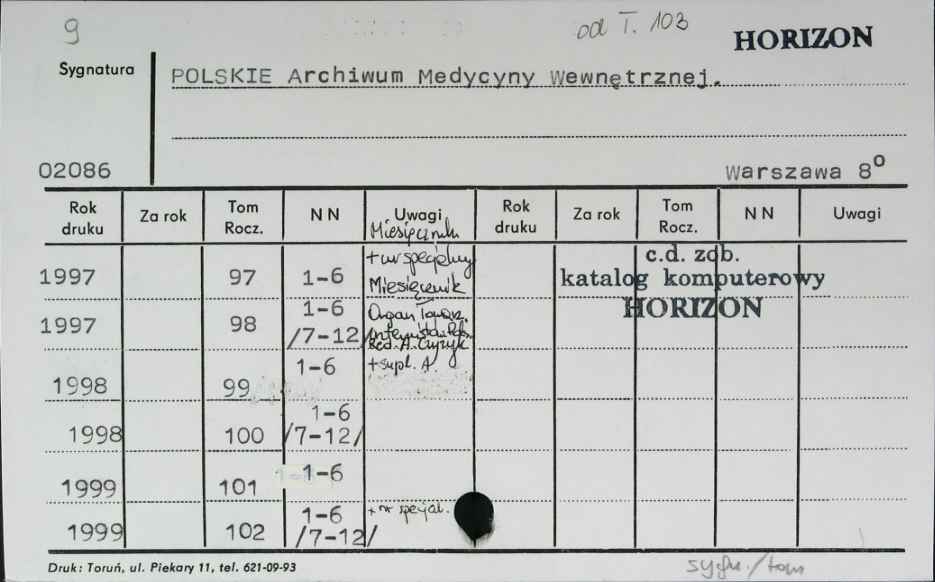 9
od T. 103
HORIZON
Sygnatura
POLSKIE Archiwum Medycyny Wewnętrznej.
02086
Warszawa 8°
Rok druku Za rok Tom Rocz. NN Uwagi Rok druku Za rok Tom Rocz. NN Uwagi
Miesięcznik
1997 97 1-6 + nr specjalny
Miesięcznik
c.d. zob.
katalog komputerowy
HORIZON
1997 98 1-6
/7-12/ Organ Towarz.
Internistów Pol.
Red. A.
1998 99 1-6 + supl. A.
1998 100 1-6
/7-12/
1999 101 1-6
1999 102 1-6
/7-12/ + nr specjal.
Druk: Toruń, ul. Piekary 11, tel. 621-09-93
sygn./tom